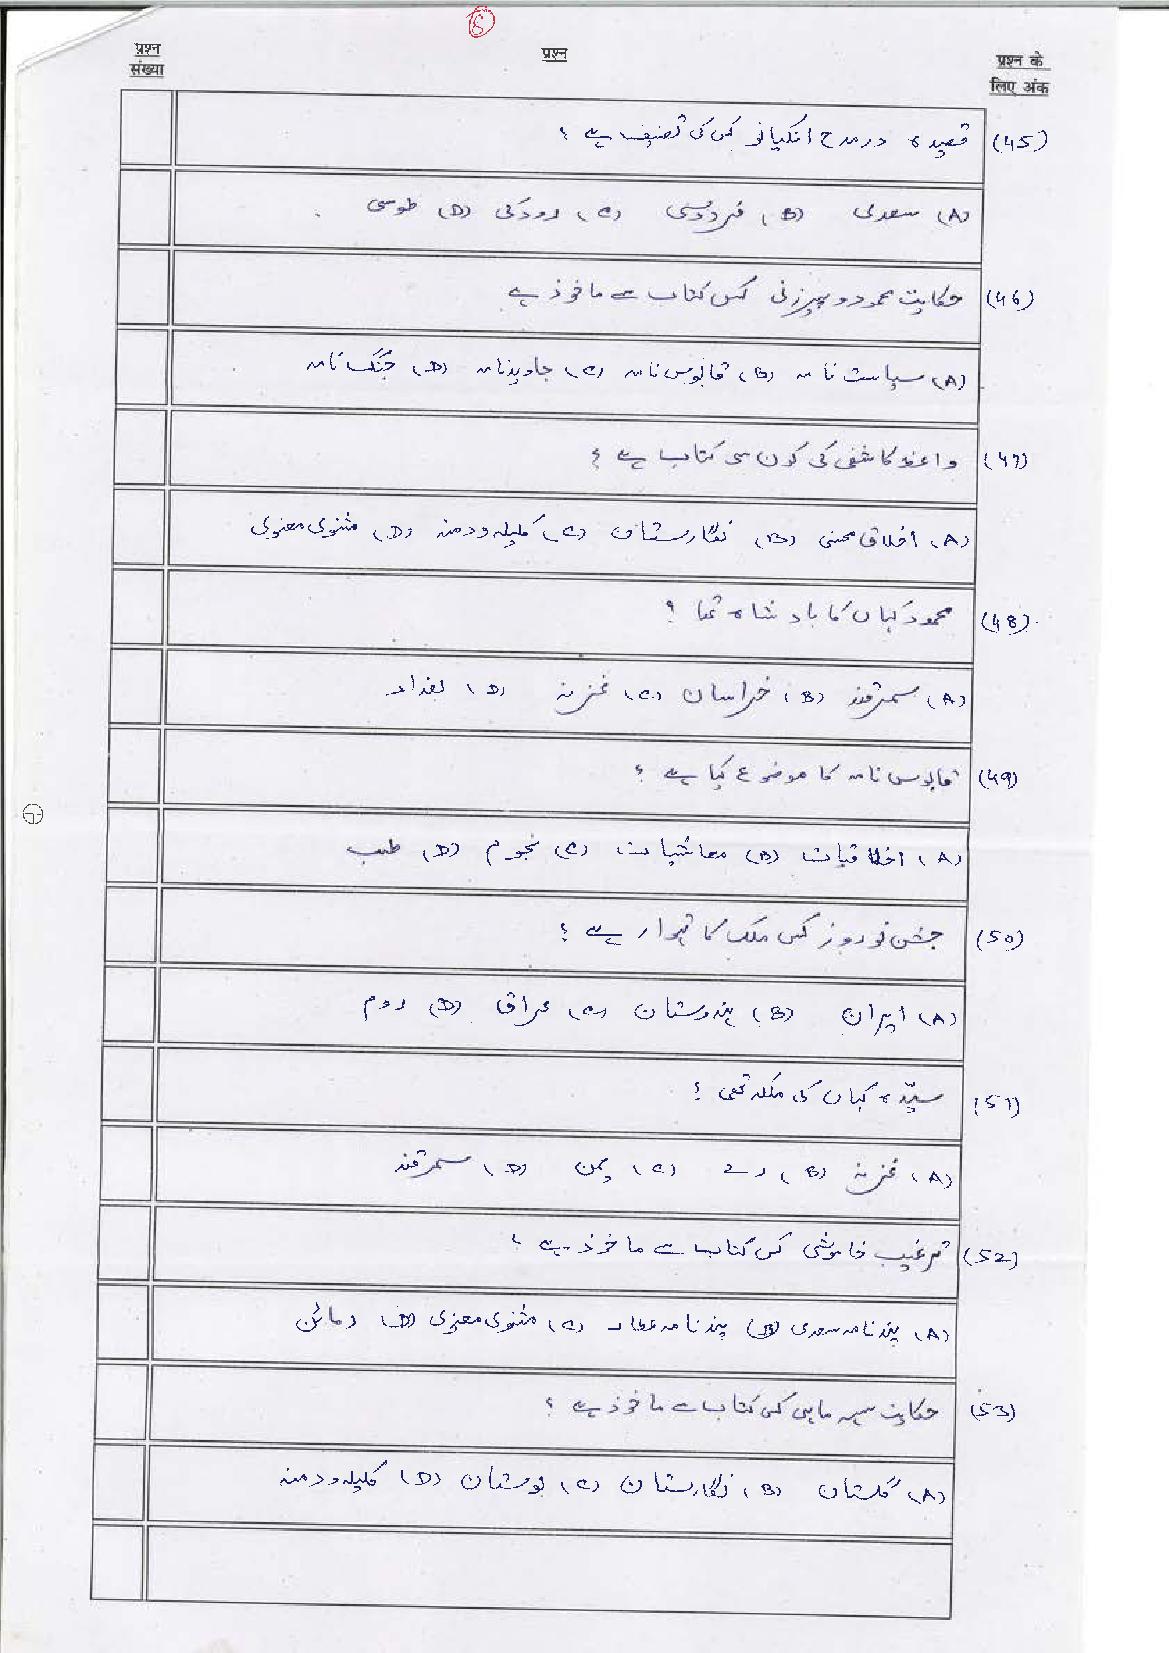 8
प्रश्न संख्या
प्रश्न
प्रश्न के लिए अंक
(45) قصیدہ در مدح انکیانو کس کی تصنیف ہے ؟
(A) سعدی (B) فردوسی (C) رودکی (D) طوسی
(46) حکایت محمود و پیرزنی کس کتاب سے ماخوذ ہے
(A) سیاست نامہ (B) قابوس نامہ (C) جاویدنامہ (D) جنگ نامہ
(47) واعظ کاشفی کی کون سی کتاب ہے ؟
(A) اخلاق محسنی (B) نگارستان (C) کلیلہ و دمنہ (D) مثنوی معنوی
(48) محمود کہاں کا بادشاہ تھا ؟
(A) سمرقند (B) خراسان (C) غزنہ (D) بغداد
(49) قابوس نامہ کا موضوع کیا ہے ؟
(A) اخلاقیات (B) معاشیات (C) نجوم (D) طب
(50) جشن نوروز کس ملک کا تہوار ہے ؟
(A) ایران (B) ہندوستان (C) عراق (D) روم
(51) سیّدہ کہاں کی ملکہ تھی ؟
(A) غزنہ (B) رے (C) یمن (D) سمرقند
(52) ترغیب خاموشی کس کتاب سے ماخوذ ہے ؟
(A) پندنامہ سعدی (B) پندنامہ عطار (C) مثنوی معنوی (D) رمائن
(53) حکایت سہ ماہی کس کتاب سے ماخوذ ہے ؟
(A) گلستاں (B) نگارستان (C) بوستان (D) کلیلہ و دمنہ